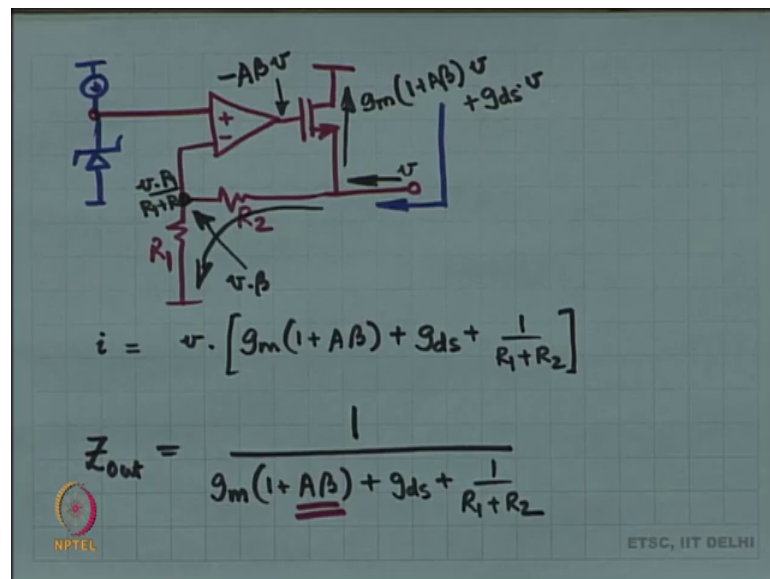 -Aβv
gm(1+Aβ)v
+gds·v
+
-
v
v.R1
R1+R
R2
R1
v.β
i = v.[gm(1+Aβ) + gds + 1/(R1+R2)]
Zout = 1/(gm(1+Aβ) + gds + 1/(R1+R2))
NPTEL
ETSC, IIT DELHI